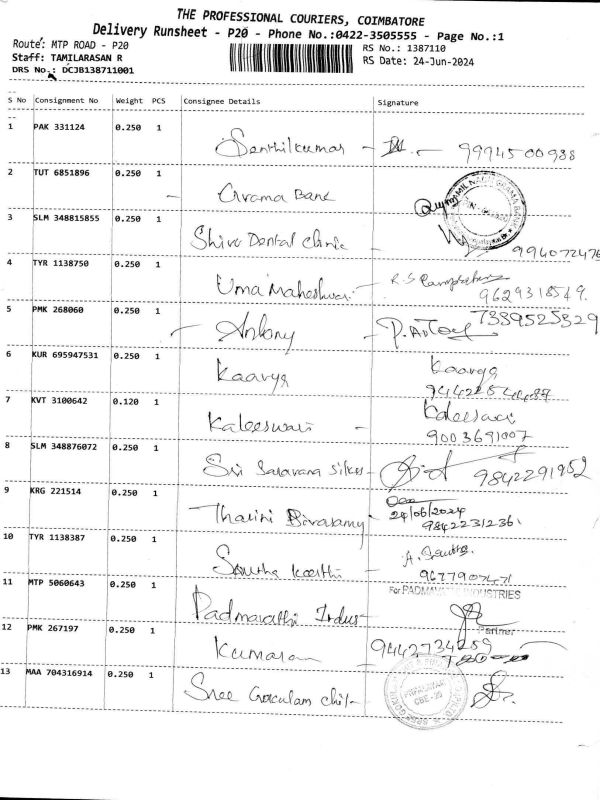 THE PROFESSIONAL COURIERS, COIMBATORE
Delivery Runsheet - P20 - Phone No.:0422-3505555 - Page No.:1
Route: MTP ROAD - P20
RS No.: 1387110
Staff: TAMILARASAN R
RS Date: 24-Jun-2024
DRS No.: DCJB138711001
S No Consignment No Weight PCS Consignee Details Signature
1 PAK 331124 0.250 1 Senthilkumar - 99945 00988
2 TUT 6851896 0.250 1 - Grama Bank
3 SLM 348815855 0.250 1 Shiva Dental Clinic - 994072476
4 TYR 1138750 0.250 1 Uma Maheshwari - R.S
9629318549.
5 PMK 268060 0.250 1 - Antony - P. Antony 7339525329
6 KUR 695947531 0.250 1 Kaavya Kaavya
7 KVT 3100642 0.120 1 Kaleeswari - Kaleeswari
9003691007
8 SLM 348876072 0.250 1 Sri Saravana Silks - 9842291952
9 KRG 221514 0.250 1 Tharini -
24/06/2024
9842231236.
10 TYR 1138387 0.250 1 Keerthi - A.
11 MTP 5060643 0.250 1 Padmavathi Indus- For PADMAVATHI INDUSTRIES
Partner
12 PMK 267197 0.250 1 Kumaran 9442734259
13 MAA 704316914 0.250 1 Sree Goculam Chit-